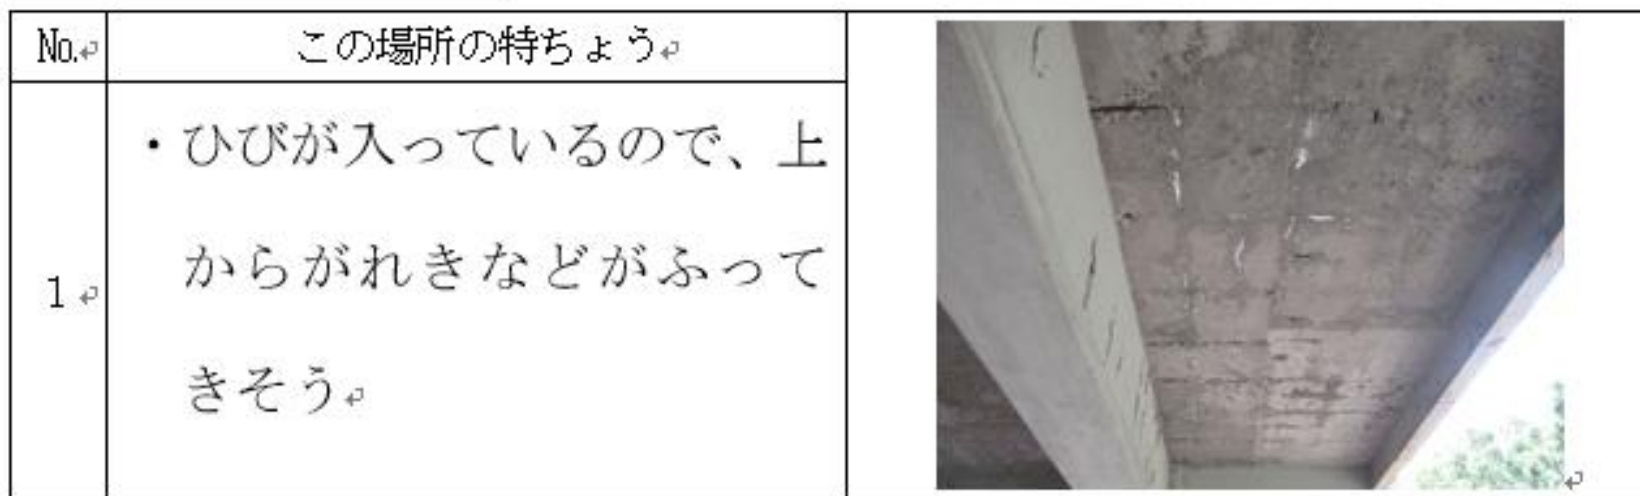 No.
この場所の特ちょう
1
・ひびが入っているので、上
からがれきなどがふって
きそう